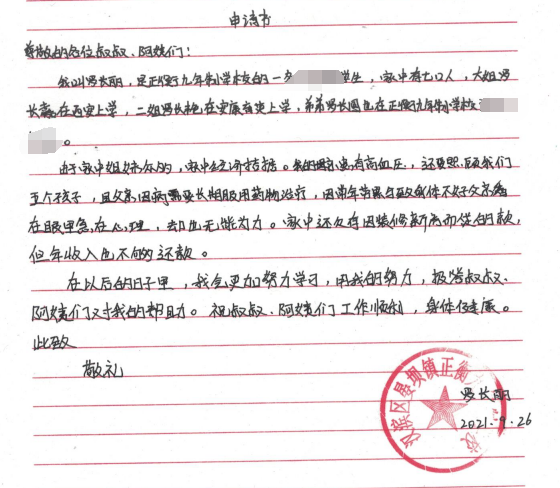 申请书
尊敬的各位叔叔、阿姨们:
我叫罗长丽,是正衡九年制学校的一名 学生,家中有七口人,大姐罗
长 在西安上学,二姐罗长艳在安康育英上学,弟弟罗长园也在正衡九年制学校
。
由于家中姐妹众多,家中经济拮据。我的 患有高血压,还要照顾我们
五个孩子,且父亲因病需要长期服用药物治疗,因常年劳累导致身体不好父亲看
在眼里急在心里,却也无能为力。家中还欠有因装修新房而贷的款,
但年收入也不够还款。
在以后的日子里,我会更加努力学习,用我的努力,报答叔叔、
阿姨们对我的帮助。祝叔叔、阿姨们工作顺利,身体健康。
此致
敬礼
罗长丽
2021.9.26
汉滨区晏坝镇正衡九 校